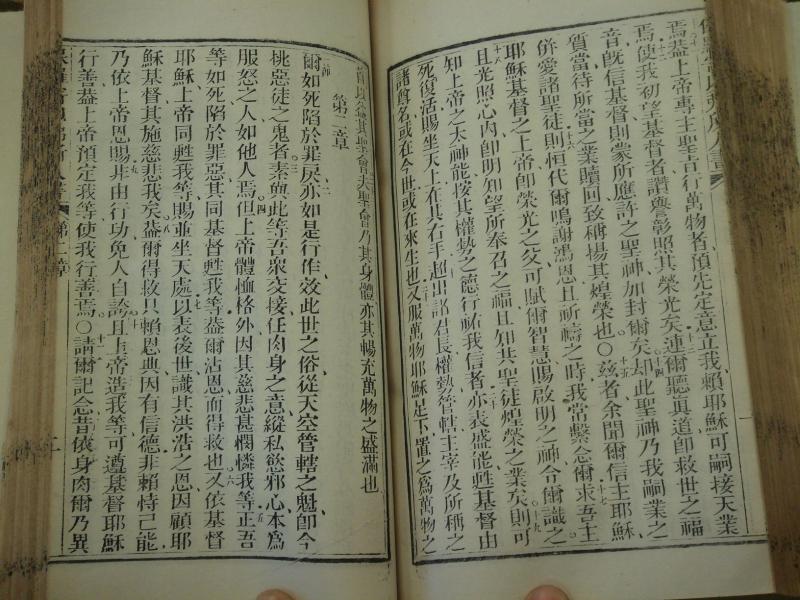 焉蓋上帝專主聖旨行萬物者預先定意立我賴耶穌可嗣接天業
焉使我初望基督者讚譽彰照其榮光矣連爾聽眞道卽救世之福
音旣信基督則蒙所應許之聖神加封爾矣却此聖神乃我嗣業之
質當待所當之業贖回致稱揚其煌榮也○茲者余聞爾信主耶穌
倂愛諸聖徒則恒代爾鳴謝鴻恩且祈禱之時我常繫念爾求吾主
耶穌基督之上帝卽榮光之父可賦爾智慧賜啟明之神令爾識之
且光照心內卽明知望所奉召之福且知其聖徒煌榮之業矣則可
知上帝之太神能按其權勢之德行祐我信者亦表盛能甦基督由
死復活賜坐天上在其右手超出諸君長權勢管轄主宰及所稱之
諸尊名或在今世或在來生也又服萬物耶穌足下置之爲萬物之
其聖會夫聖會乃其身體亦其暢充萬物之盛滿也
第二章
爾如死陷於罪戾亦如是行作效此世之俗從天空管轄之魁卽今
桃惡徒之鬼者素與此等吾衆交接任肉身之意縱私慾邪心本爲
服怒之人如他人焉但上帝體恤格外因其慈悲甚憫憐我等正吾
等如死陷於罪惡其同基督甦我等蓋爾沾恩而得救也又依基督
耶穌上帝同甦我等賜並坐天處以表後世識其洪浩之恩因顧耶
穌基督其施慈悲我矣蓋爾得救只賴恩典因有信德非賴恃己能
乃依上帝恩賜非由行功免人自誇且上帝造我等可遵基督耶穌
行善蓋上帝預定我等使我行善焉○請爾記念昔依身肉爾乃異
第二章